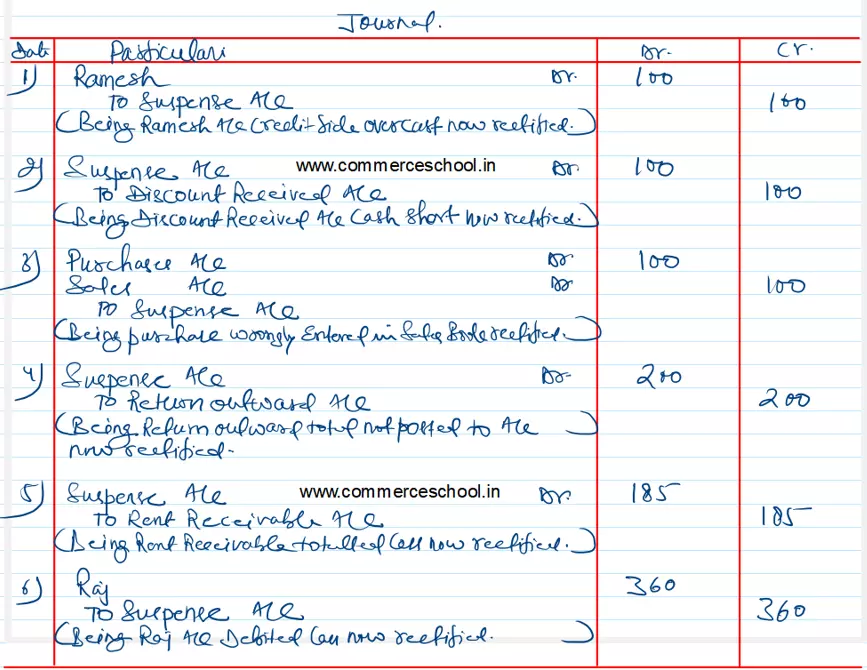 Journal.
Date Particulars Dr. Cr.
1) Ramesh Dr. 100
To Suspense A/c 100
(Being Ramesh A/c Credit Side overcast now rectified.)
2) Suspense A/c www.commerceschool.in Dr. 100
To Discount Received A/c 100
(Being Discount Received A/c Cash Short now rectified.)
3) Purchases A/c Dr 100
Sales A/c Dr 100
To Suspense A/c
(Being purchase wrongly Entered in Sales Book rectified.)
4) Suspense A/c Dr. 200
To Return outward A/c 200
(Being Return outward total not posted to A/c)
now rectified.
5) Suspense A/c www.commerceschool.in Dr. 185
To Rent Receivable A/c 185
(Being Rent Receivable totalled Less now rectified.)
6) Raj 360
To Suspense A/c 360
(Being Raj A/c Debited Less now rectified.)